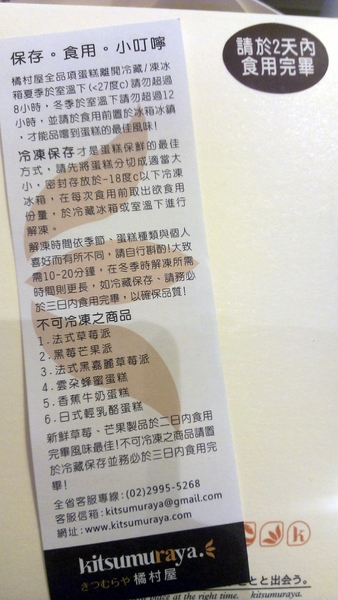 保存。食用。小叮嚀
請於2天內
食用完畢
橘村屋全品項蛋糕離開冷藏/凍冰
箱夏季於室溫下(<27度c)請勿超過
8小時,冬季於室溫下請勿超過12
小時,並請於食用前置於冰箱冰鎮
,才能品嚐到蛋糕的最佳風味!
冷凍保存才是蛋糕保鮮的最佳
方式,請先將蛋糕分切成適當大
小,密封存放於-18度c以下冷凍
冰箱,在每次食用前取出欲食用
份量,於冷藏冰箱或室溫下進行
解凍。
解凍時間依季節、蛋糕種類與個人
喜好而有所不同,請自行斟酌!大致
需10-20分鐘,在冬季時解凍所需
時間則更長,如冷藏保存、請務必
於三日內食用完畢,以確保品質!
不可冷凍之商品
1.法式草莓派
2.黑莓芒果派
3.法式黑嘉麗草莓派
4.雲朵蜂蜜蛋糕
5.香蕉牛奶蛋糕
6.日式輕乳酪蛋糕
新鮮草莓、芒果製品於二日內食用
完畢風味最佳!不可冷凍之商品請置
於冷藏保存並務必於三日內食用完
畢!
全省客服專線:(02)2995-5268
客服信箱:kitsumuraya@gmail.com
網址:www.kitsumuraya.com
kitsumuraya.
きつむらや 橘村屋
k
ことと出会う。
place at the right time. kitsumuraya.